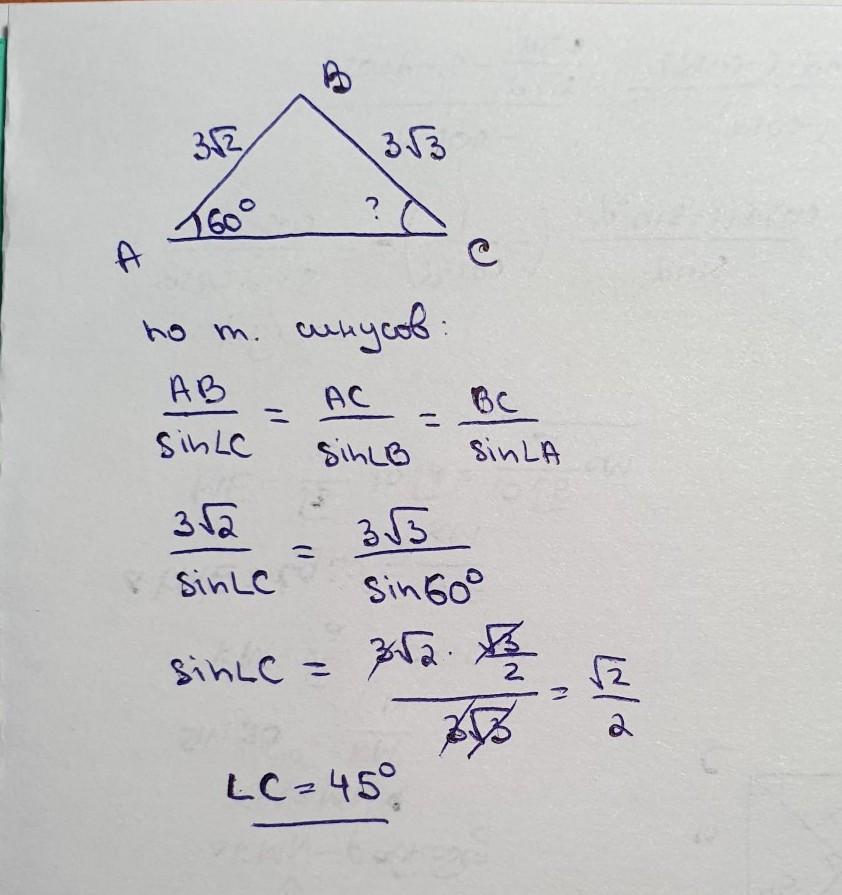 B
3√2 3√3
60° ?
A C
по т. синусов:
AB/sin∠C = AC/sin∠B = BC/sin∠A
3√2/sin∠C = 3√3/sin60°
sin∠C = (3√2 · √3/2)/(3√3) = √2/2
∠C = 45°